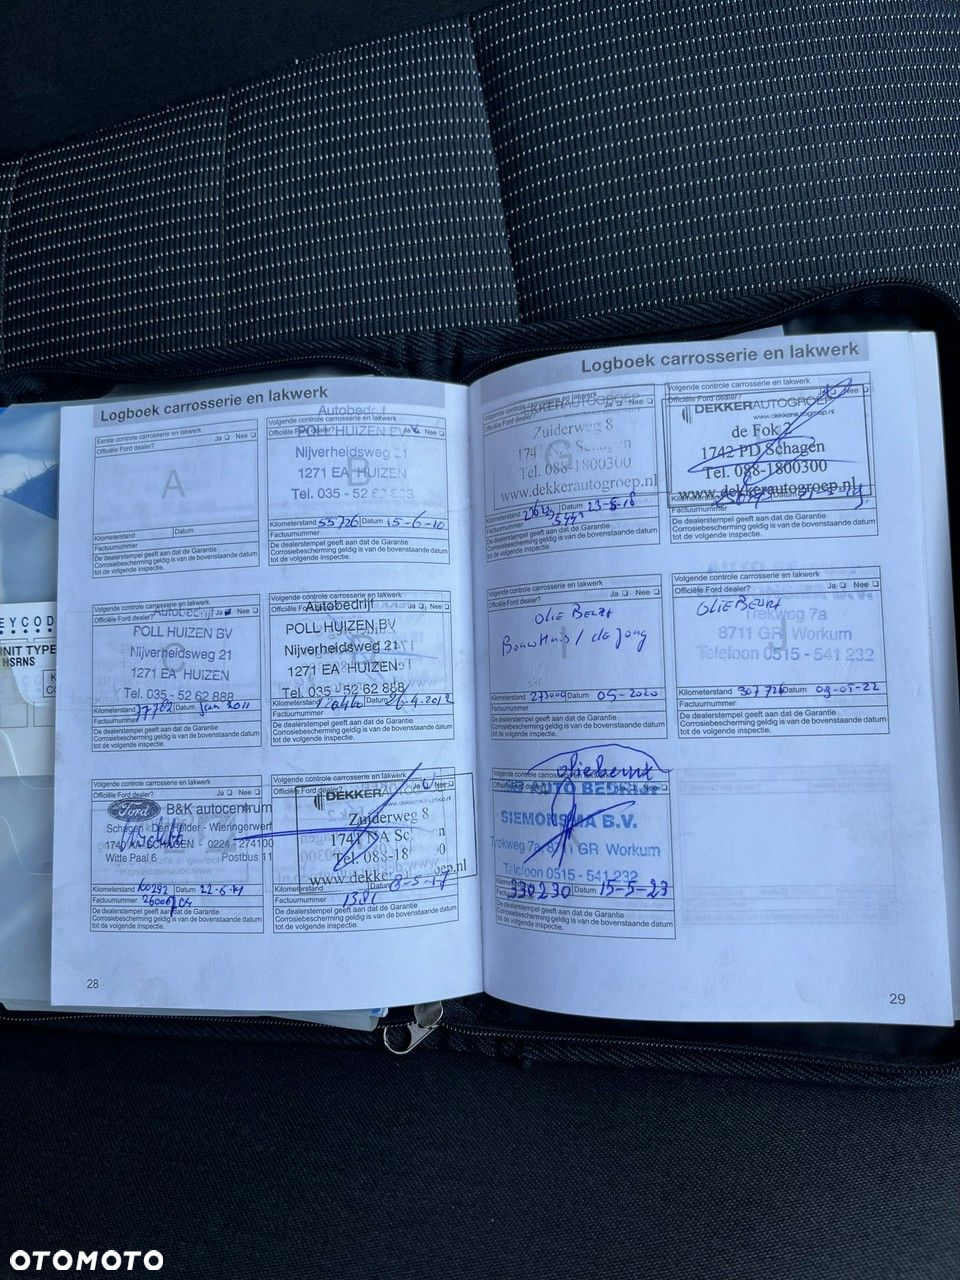 Logboek carrosserie en lakwerk
Eerste controle carrosserie en lakwerk
Officiële Ford dealer? Ja Nee
A
Kilometerstand Datum
Factuurnummer
De dealerstempel geeft aan dat de Garantie
Corrosiebescherming geldig is van de bovenstaande datum
tot de volgende inspectie.
Volgende controle carrosserie en lakwerk
Officiële Ford Nee
Autobedrijf
POLL HUIZEN BV
Nijverheidsweg 21
B
1271 EA HUIZEN
Tel. 035 - 52 62 888
Kilometerstand 55726 Datum 15-6-10
Factuurnummer
De dealerstempel geeft aan dat de Garantie
Corrosiebescherming geldig is van de bovenstaande datum
tot de volgende inspectie.
Volgende controle carrosserie en lakwerk
Officiële Ford dealer? Ja Nee
Autobedrijf
POLL HUIZEN BV
Nijverheidsweg 21
C
1271 EA HUIZEN
Tel. 035 - 52 62 888
Kilometerstand Datum Jan 2011
Factuurnummer
De dealerstempel geeft aan dat de Garantie
Corrosiebescherming geldig is van de bovenstaande datum
tot de volgende inspectie.
Volgende controle carrosserie en lakwerk
Officiële Ford Ja Nee
Autobedrijf
POLL HUIZEN BV
Nijverheidsweg 21
1271 EA HUIZEN
Tel. 035 - 52 62 888
Kilometerstand Datum 26.4.2012
Factuurnummer
De dealerstempel geeft aan dat de Garantie
Corrosiebescherming geldig is van de bovenstaande datum
tot de volgende inspectie.
Volgende controle carrosserie en lakwerk
Officiële Ford dealer? Ja Nee
Ford B&K autocentrum
Schagen - Den Helder - Wieringerwerf
1740 AA SCHAGEN 0224 - 274100
Witte Paal 6 Postbus 11
Kilometerstand 160292 Datum 22-6-
Factuurnummer
De dealerstempel geeft aan dat de Garantie
Corrosiebescherming geldig is van de bovenstaande datum
tot de volgende inspectie.
Volgende controle carrosserie en lakwerk
Officiële Ja Nee
DEKKER
Zuiderweg 8
1741 NA Sch n
Tel. 088-18 0
www.dekke oep.nl
Kilometerstand Datum
Factuurnummer
De dealerstempel geeft aan dat de Garantie
Corrosiebescherming geldig is van de bovenstaande datum
tot de volgende inspectie.
28
Logboek carrosserie en lakwerk
Volgende controle carrosserie en lakwerk
Ja Nee
DEKKERAUTOGROEP
Zuiderweg 8
G
Tel. 088-1800300
www.dekkerautogroep.nl
Kilometerstand Datum 23-5-18
Factuurnummer
De dealerstempel geeft aan dat de Garantie
Corrosiebescherming geldig is van de bovenstaande datum
tot de volgende inspectie.
Volgende controle carrosserie en lakwerk
Officiële Ford dealer? Nee
DEKKERAUTOGROEP
www.dekkerautogroep.nl
de Fok 2
1742 PD Schagen
Tel. 088-1800300
www.dekkerautogroep.nl
Kilometerstand Datum
Factuurnummer
De dealerstempel geeft aan dat de Garantie
Corrosiebescherming geldig is van de bovenstaande datum
tot de volgende inspectie.
Volgende controle carrosserie en lakwerk
Officiële Ford dealer? Ja Nee
OLIE BEURT
Bouwhuis / de Jong
I
Kilometerstand 273000 Datum 05-2020
Factuurnummer
De dealerstempel geeft aan dat de Garantie
Corrosiebescherming geldig is van de bovenstaande datum
tot de volgende inspectie.
Volgende controle carrosserie en lakwerk
Officiële Ford dealer? Ja Nee
OLIEBEURT
Trekweg 7a
J
8711 GR Workum
Telefoon 0515 - 541 232
Kilometerstand 307726 Datum 03-05-22
Factuurnummer
De dealerstempel geeft aan dat de Garantie
Corrosiebescherming geldig is van de bovenstaande datum
tot de volgende inspectie.
Volgende controle carrosserie en lakwerk
oliebeurt
AUTO BEDRIJF
SIEMONSMA B.V.
Trekweg 7a, 8711 GR Workum
Telefoon 0515 - 541 232
330230 Datum 15-5-23
De dealerstempel geeft aan dat de Garantie
Corrosiebescherming geldig is van de bovenstaande datum
tot de volgende inspectie.
29
EYCOD
NIT TYPE
HSRNS
OTOMOTO